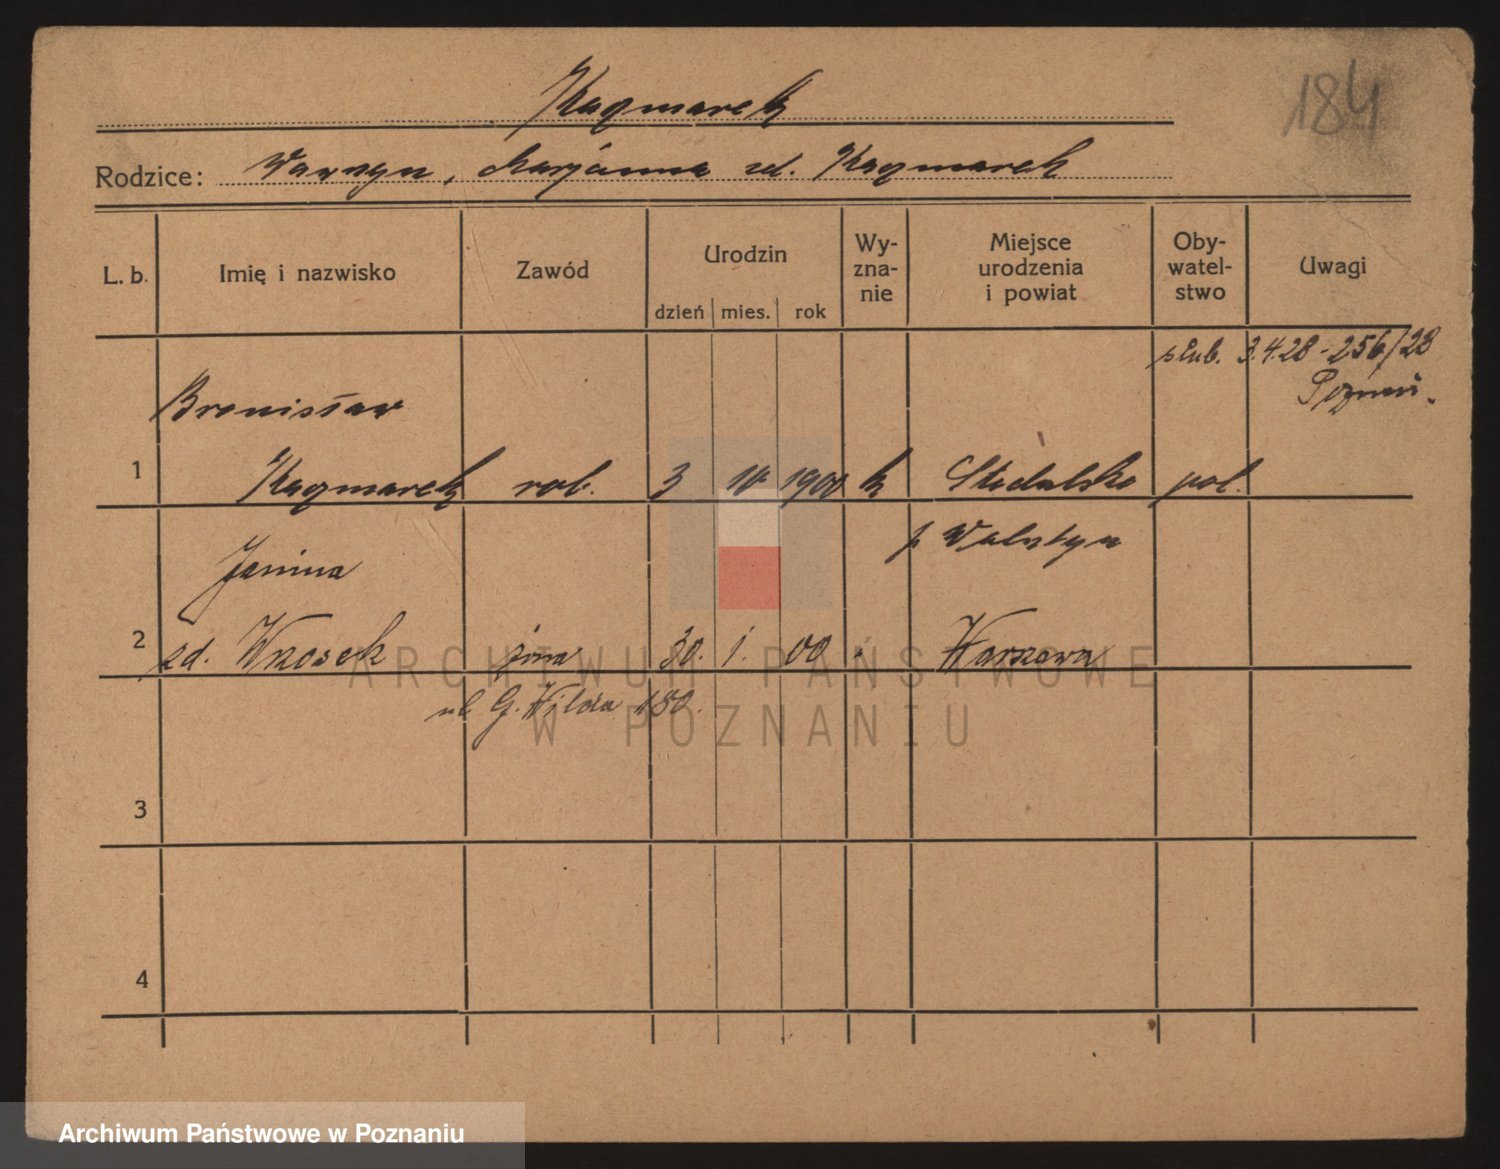 184
Kaczmarek
Rodzice: Wawrzyn, Marjanna zd. Kaczmarek
L. b. Imię i nazwisko Zawód Urodzin dzień mies. rok Wy-zna-nie Miejsce urodzenia i powiat Oby-watel-stwo Uwagi
ślub. 3.4.28 - 256/28
Poznań.
Bronisław
1 Kaczmarek rob. 3 10 1900 k Stodolsko pol.
p Wolsztyn
Janina
2 zd. Wrosek żona 30. 1. 00 Warszawa
ul. G. Wilda 180.
3
4
ARCHIWUM PAŃSTWOWE
W POZNANIU
Archiwum Państwowe w Poznaniu